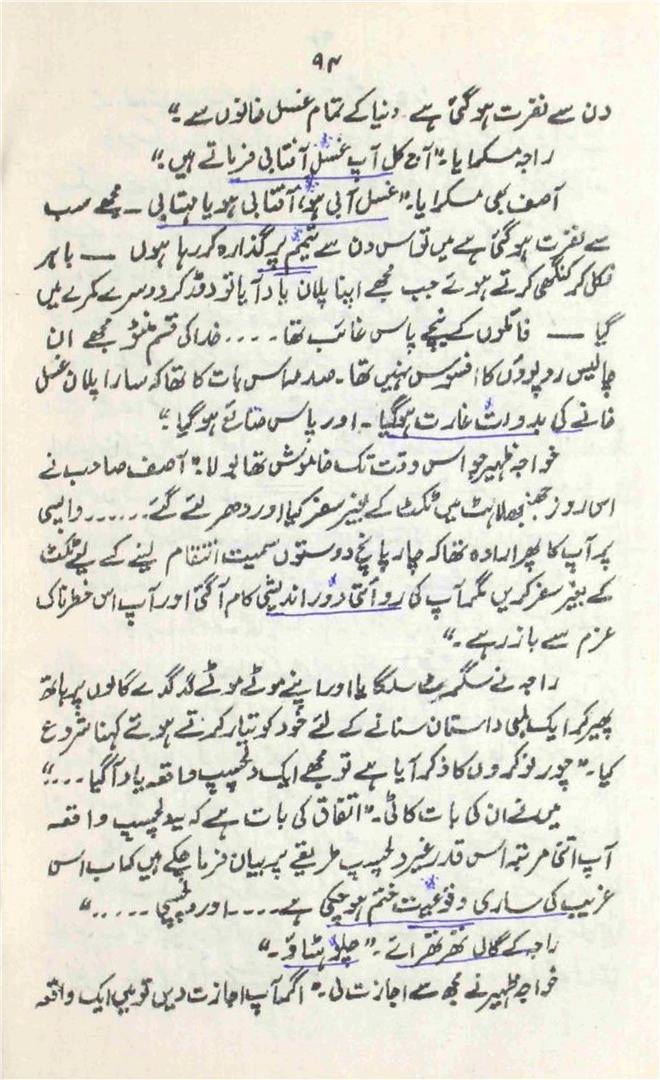 ۹۴
دن سے نفرت ہو گئی ہے دنیا کے تمام غسل خانوں سے۔“
راجہ مسکرایا۔ ”آج کل آپ غسل آفتابی فرماتے ہیں۔“
آصف بھی مسکرایا۔ ”غسل آبی ہو، آفتابی ہو یا مہتابی ۔ مجھے سب
سے نفرت ہو گئی ہے میں تو اس دن سے تیمم پر گذارہ کر رہا ہوں — باہر
نکل کر کنگھی کرتے ہوئے جب مجھے اپنا پلان یاد آیا تو دوڑ کر دوسرے کمرے میں
گیا — فائلوں کے نیچے پاس غائب تھا .... خدا کی قسم منٹو مجھے ان
چالیس روپوؤں کا افسوس نہیں تھا۔ صدمہ اس بات کا تھا کہ سارا پلان غسل
خانے کی بدولت غارت ہو گیا ۔ اور پاس ضائع ہو گیا۔“
خواجہ ظہیر جو اس وقت تک خاموش تھا بولا: ”آصف صاحب نے
اس روز جھنجھلاہٹ میں ٹکٹ کے بغیر سفر کیا اور دھر لئے گئے ...... واپسی
پر آپ کا پھر ارادہ تھا کہ چار پانچ دوستوں سمیت انتقام لینے کے لیے ٹکٹ
کے بغیر سفر کریں مگر آپ کی روائتی دور اندیشی کام آ گئی اور آپ اس خطرناک
عزم سے باز رہے۔“
راجہ نے سگریٹ سلگایا اور اپنے موٹے موٹے گدگدے گالوں پر ہاتھ
پھیر کر ایک لمبی داستان سنانے کے لئے خود کو تیار کرتے ہوئے کہنا شروع
کیا۔ ”چور نوکروں کا ذکر آیا ہے تو مجھے ایک دلچسپ واقعہ یاد آ گیا ...“
میں نے ان کی بات کاٹی۔ ”اتفاق کی بات ہے کہ یہ دلچسپ واقعہ
آپ اتنی مرتبہ اس قدر غیر دلچسپ طریقے پر بیان فرما چکے ہیں کہ اب اس
غریب کی ساری وقوعیت ختم ہو چکی ہے .... اور دلچسپی .....“
راجہ کے گال تھرتھرائے۔ ”چلو ہٹاؤ۔“
خواجہ ظہیر نے مجھ سے اجازت لی۔ ”اگر آپ اجازت دیں تو میں ایک واقعہ